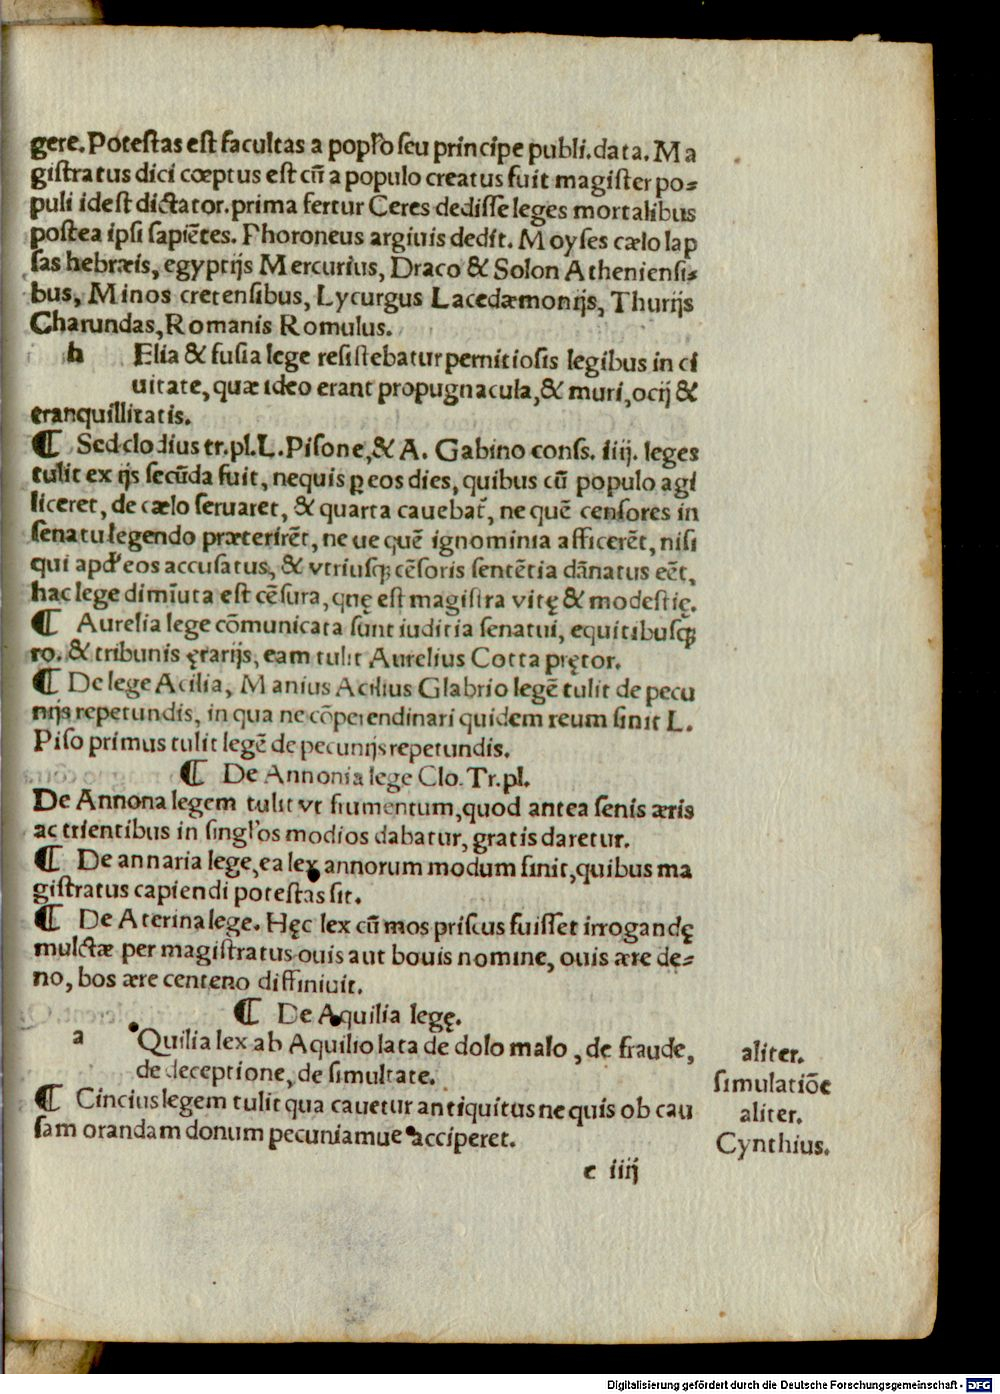 gere. Potestas est facultas a popľo seu principe publi. data. Ma
gistratus dici cœptus est cū a populo creatus fuit magister po⸗
puli idest dictator. prima fertur Ceres dedisse leges mortalibus
postea ipsi sapiētes. Phoroneus argiuis dedit. Moyses cælo lap
sas hebræis, egyptijs Mercurius, Draco & Solon Atheniensi⸗
bus, Minos cretensibus, Lycurgus Lacedæmonijs, Thurijs
Charundas, Romanis Romulus.
h Elia & fusia lege resistebatur pernitiosis legibus in ci
uitate, quæ ideo erant propugnacula, & muri, ocij &
tranquillitatis.
¶ Sed clodius tr. pl. L. Pisone, & A. Gabino conss. iiij. leges
tulit ex ijs secūda fuit, nequis ꝑ eos dies, quibus cū populo agi
liceret, de cælo seruaret, & quarta cauebat̃, ne quē censores in
senatu legendo præterirēt, ne ue quē ignominia afficerēt, nisi
qui apď eos accusatus, & vtriusqꝫ cēsoris sentētia dānatus eēt,
hac lege dimiuta est cēsura, quę est magistra vitę & modestię.
¶ Aurelia lege cōmunicata sunt iuditia senatui, equitibusqꝫ
ro. & tribunis ęrarijs, eam tulit Aurelius Cotta prętor.
¶ De lege Acilia, Manius Acilius Glabrio legē tulit de pecu
nijs repetundis, in qua ne cōperendinari quidem reum sinit L.
Piso primus tulit legē de pecunijs repetundis.
¶ De Annonia lege Clo. Tr. pl.
De Annona legem tulit vt frumentum, quod antea senis æris
ac trientibus in singľos modios dabatur, gratis daretur.
¶ De annaria lege, ea lex annorum modum sinit, quibus ma
gistratus capiendi potestas sit.
¶ De Aterina lege. Hęc lex cū mos priscus fuisset irrogandę
mulctæ per magistratus ouis aut bouis nomine, ouis ære de⸗
no, bos ære centeno diffiniuit.
¶ De Aquilia legę.
a Quilia lex ab Aquilio lata de dolo malo, de fraude, aliter.
de deceptione, de simultate. simulatiōe
¶ Cincius legem tulit qua cauetur antiquitus ne quis ob cau aliter.
sam orandam donum pecuniamue acciperet. Cynthius.
c iiij
Digitalisierung gefördert durch die Deutsche Forschungsgemeinschaft - DFG